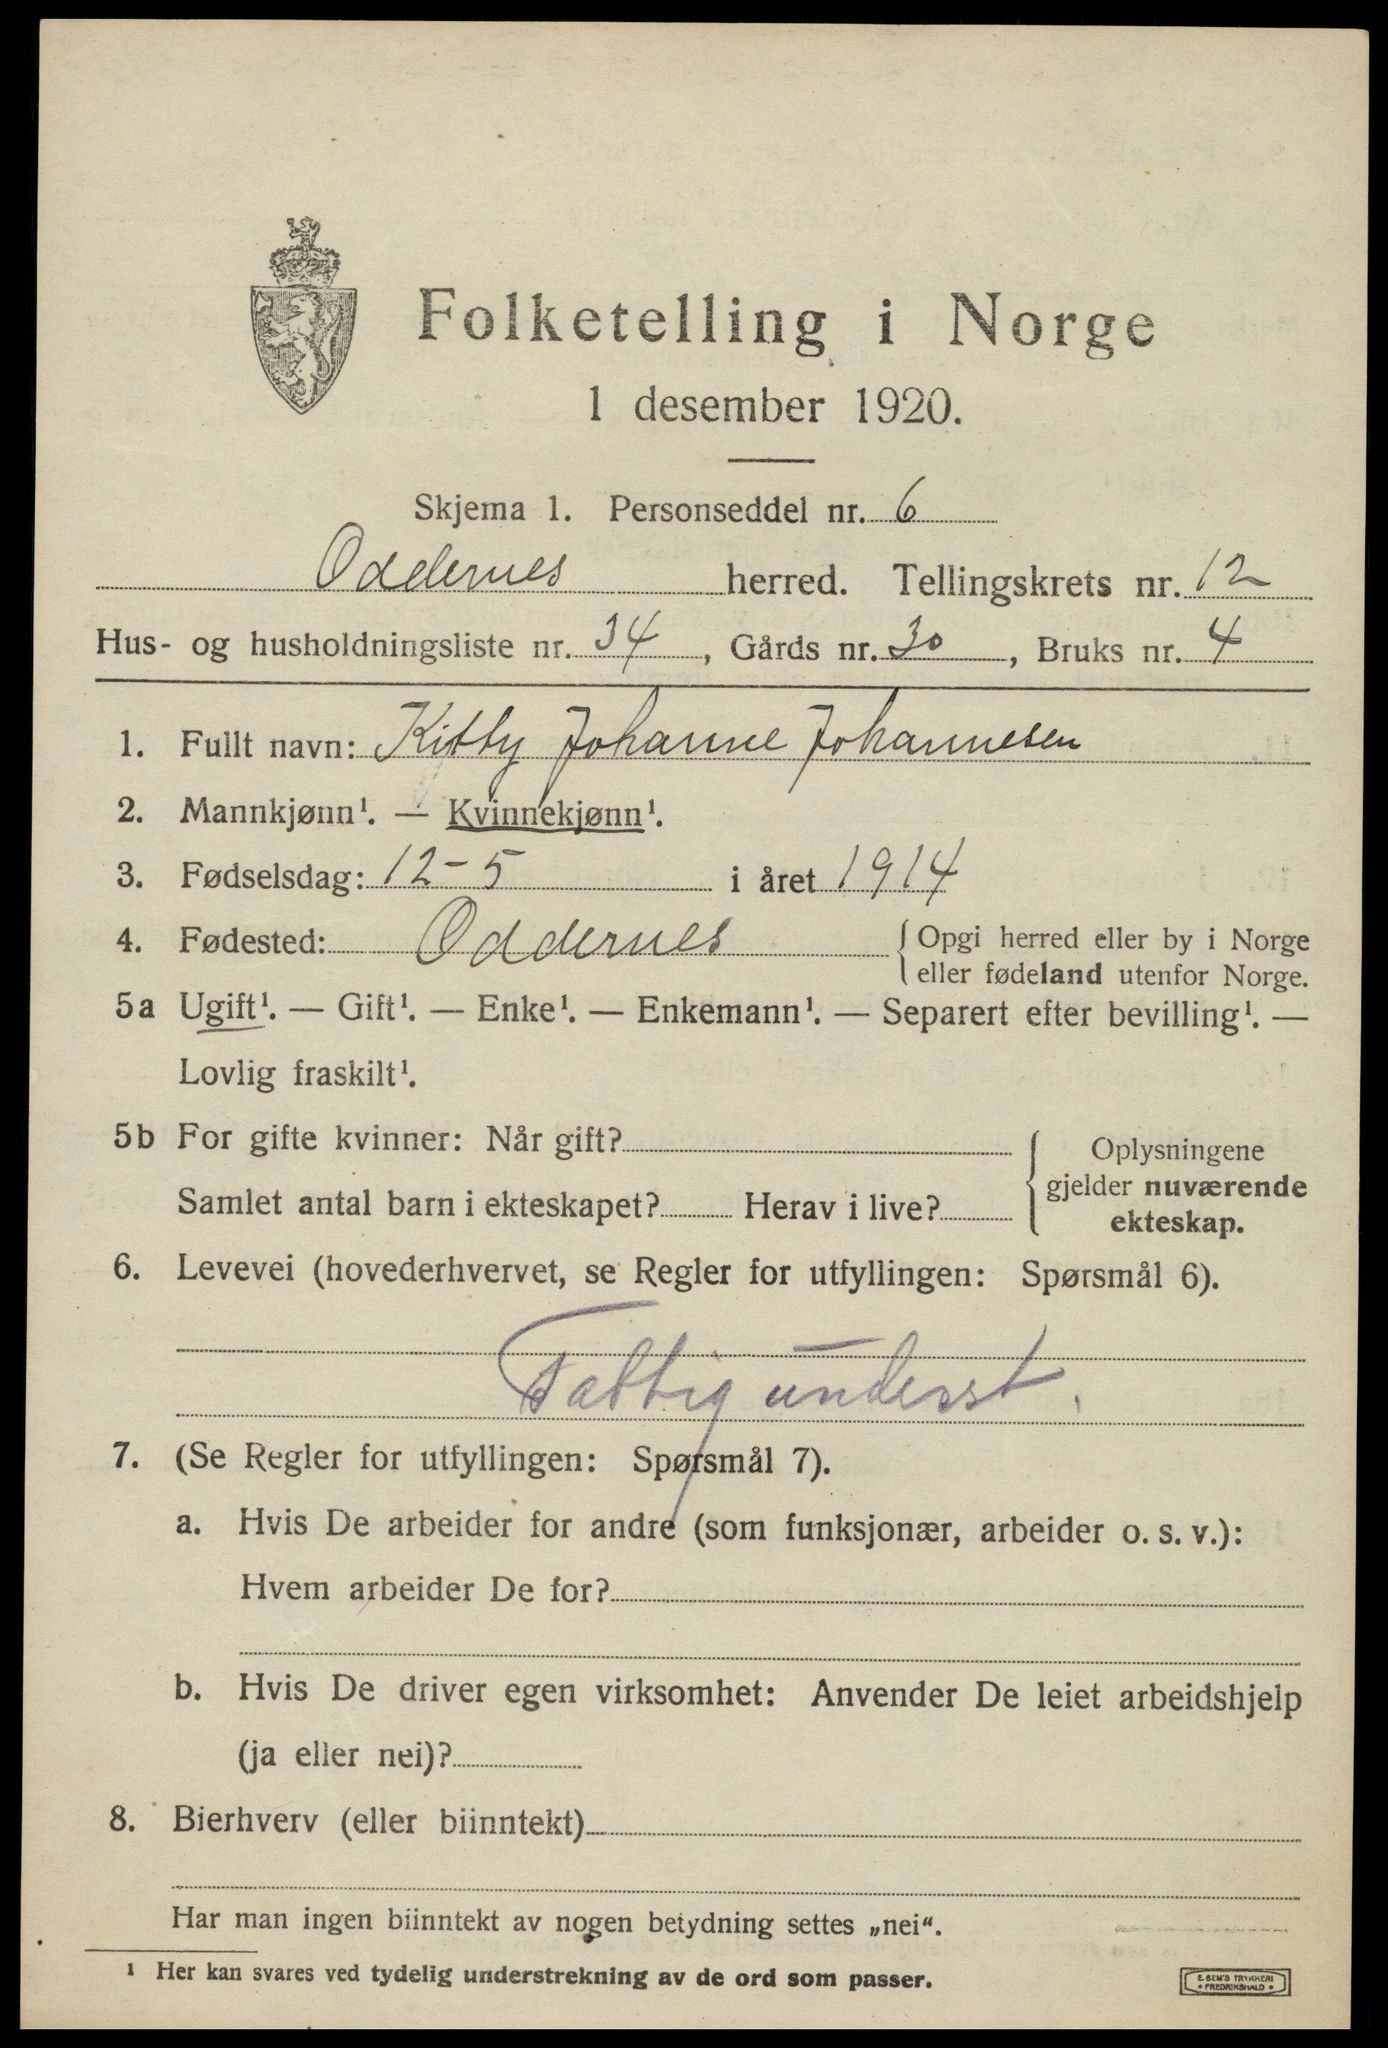 Folketelling i Norge
1 desember 1920.
Skjema 1. Personseddel nr. 6
Oddernes herred. Tellingskrets nr. 12
Hus- og husholdningsliste nr. 34, Gårds nr. 30, Bruks nr. 4
1. Fullt navn: Kitty Johanne Johannesen
2. Mannkjønn¹. — Kvinnekjønn¹.
3. Fødselsdag: 12-5 i året 1914
4. Fødested: Oddernes { Opgi herred eller by i Norge
eller fødeland utenfor Norge.
5a Ugift¹. — Gift¹. — Enke¹. — Enkemann¹. — Separert efter bevilling¹. —
Lovlig fraskilt¹.
5b For gifte kvinner: Når gift?
Samlet antal barn i ekteskapet? Herav i live?
{ Oplysningene
gjelder nuværende
ekteskap.
6. Levevei (hovederhvervet, se Regler for utfyllingen: Spørsmål 6).
Fattig underst.
7. (Se Regler for utfyllingen: Spørsmål 7).
a. Hvis De arbeider for andre (som funksjonær, arbeider o. s. v.):
Hvem arbeider De for?
b. Hvis De driver egen virksomhet: Anvender De leiet arbeidshjelp
(ja eller nei)?
8. Bierhverv (eller biinntekt)
Har man ingen biinntekt av nogen betydning settes „nei“.
¹ Her kan svares ved tydelig understrekning av de ord som passer.
E. SEM'S TRYKKERI
• FREDRIKSHALD •